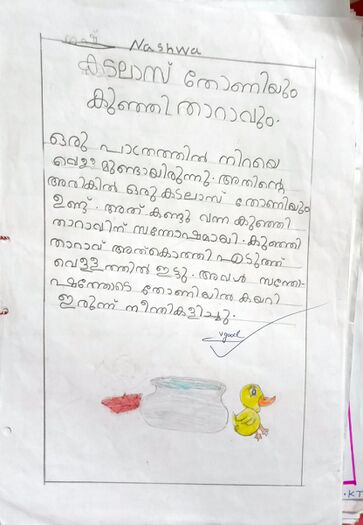 Nashwa
കടലാസ് തോണിയും
കുഞ്ഞി താറാവും.
ഒരു പാത്രത്തിൽ നിറയെ
വെള്ളമുണ്ടായിരുന്നു. അതിന്റെ
അരികിൽ ഒരു കടലാസ് തോണിയും
ഉണ്ട്. അത് കണ്ടു വന്ന കുഞ്ഞി
താറാവിന് സന്തോഷമായി. കുഞ്ഞി
താറാവ് അത്കൊത്തി എടുത്ത്
വെള്ളത്തിൽ ഇട്ടു. അവൾ സന്തോ-
ഷത്തോടെ തോണിയിൽ കയറി
ഇരുന്ന് നീന്തികളിച്ചു.
v good
KT